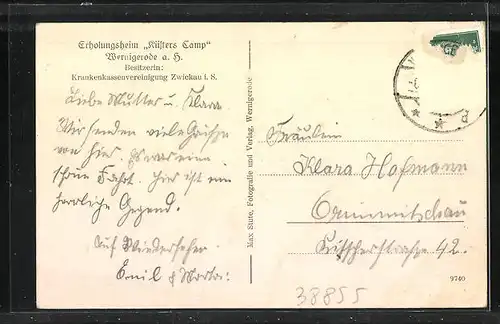 Erholungsheim „Küsters Camp"
Wernigerode a. H.
Besitzerin:
Krankenkassenvereinigung Zwickau i. S.
Liebe Mutter u. Klara
Wir senden viele Grüße
von hier. Es war eine
schöne Fahrt. Hier ist eine
herrliche Gegend.
Auf Wiedersehen
Emil & Martha
Max Stute, Fotografie und Verlag, Wernigerode
Fräulein
Klara Hofmann
Crimmitschau
Kitscherstraße 42.
9740
38855